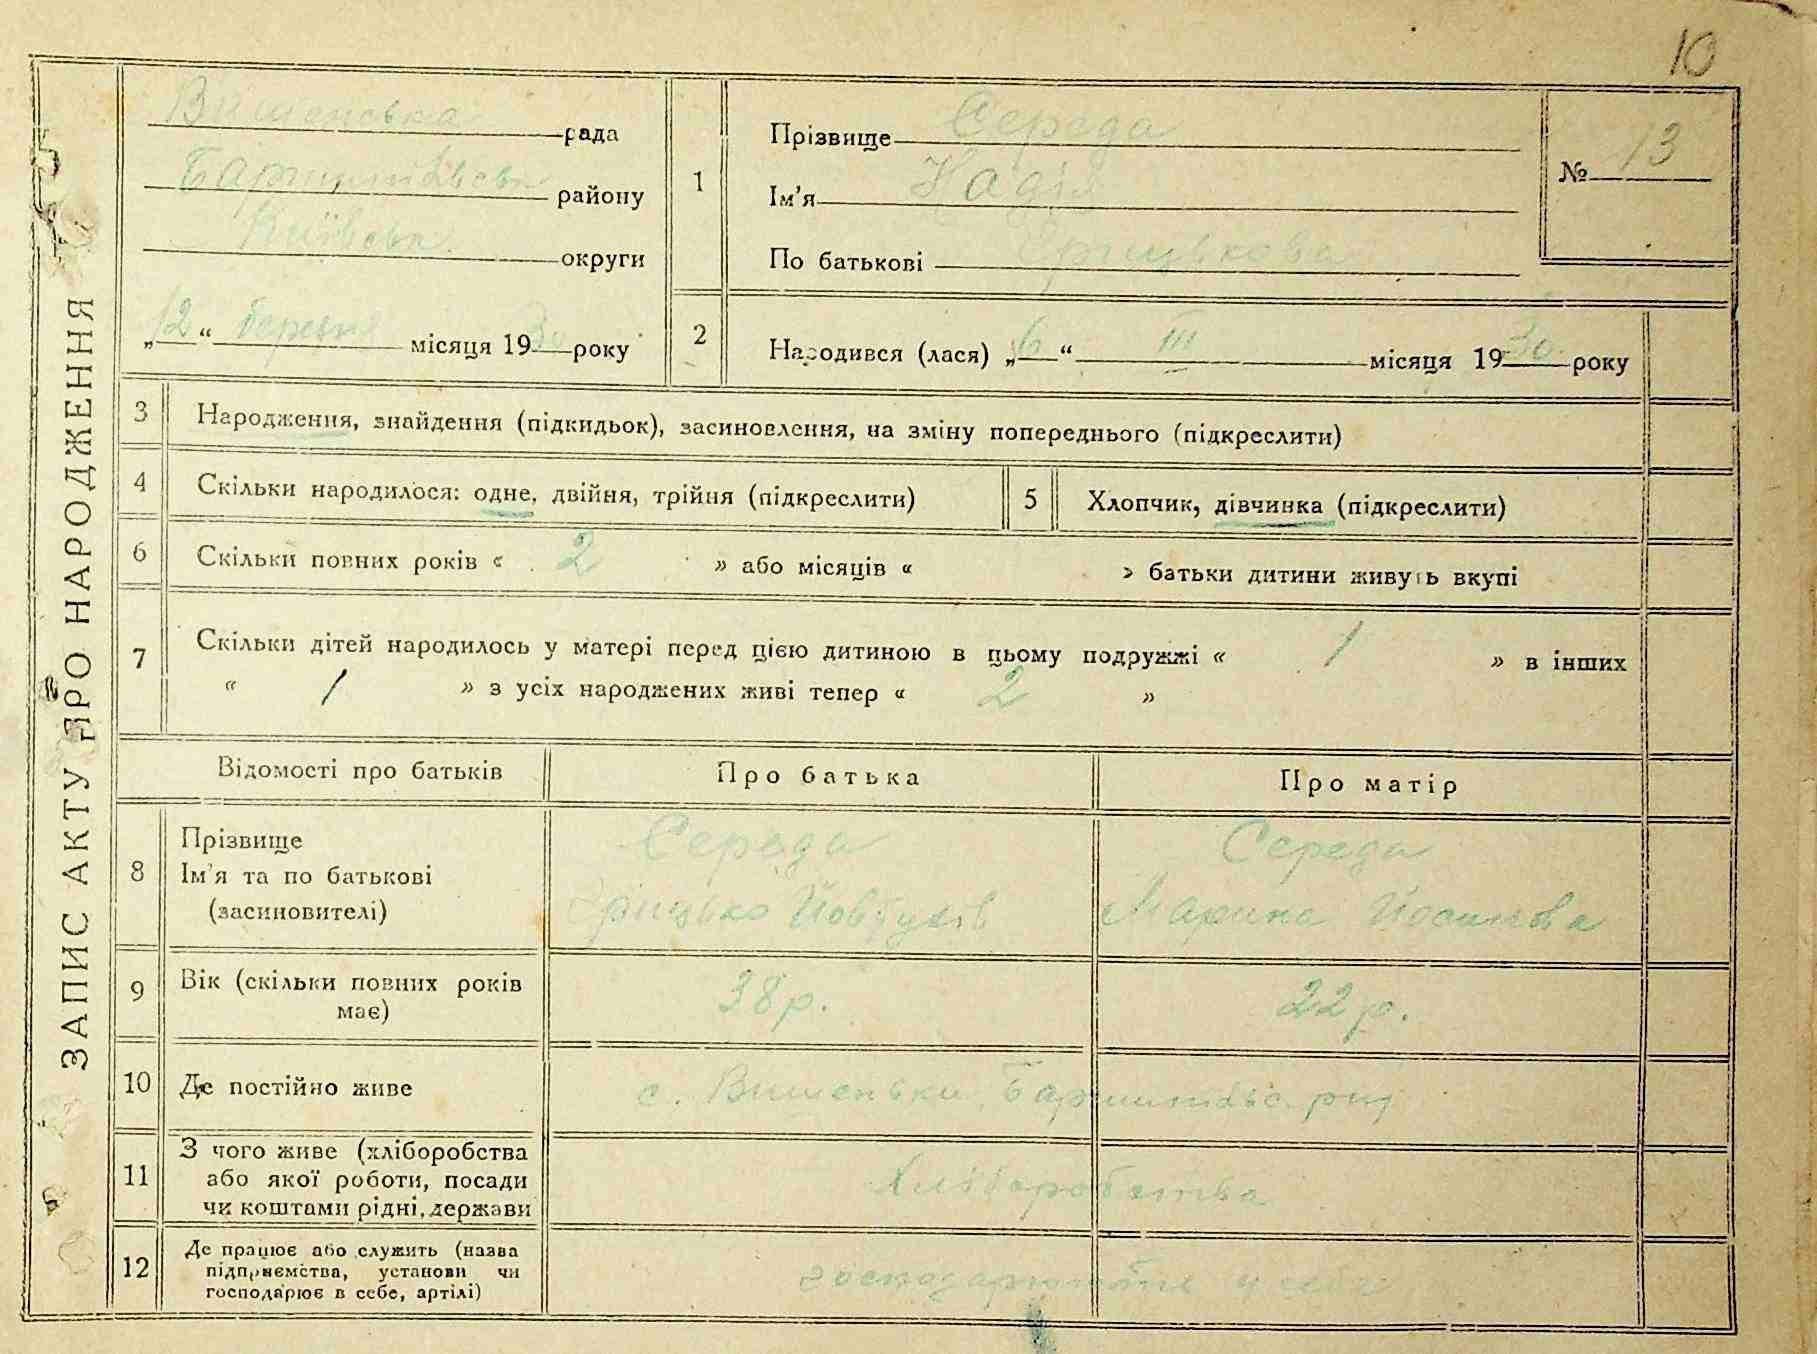 10
ЗАПИС АКТУ ПРО НАРОДЖЕННЯ
Вишенська рада
району
Київськ округи
„12“ березня місяця 1930 року
1
Прізвище Середа
Ім'я Надія
По батькові Грицькова
№ 13
2
Народився (лася) „6“ III місяця 1930 року
3 Народження, знайдення (підкидьок), засиновлення, на зміну попереднього (підкреслити)
4 Скільки народилося: одне, двійня, трійня (підкреслити)
5 Хлопчик, дівчинка (підкреслити)
6 Скільки повних років « 2 » або місяців « » батьки дитини живуть вкупі
7 Скільки дітей народилось у матері перед цією дитиною в цьому подружжі « 1 » в інших
« 1 » з усіх народжених живі тепер « 2 »
Відомості про батьків Про батька Про матір
8
Прізвище
Ім'я та по батькові
(засиновителі)
Середа
Грицько Йовтухів
Середа
Марина Йосипова
9 Вік (скільки повних років
має)
38 р.
22 р.
10 Де постійно живе
с. Вишеньки,
11
З чого живе (хліборобства
або якої роботи, посади
чи коштами рідні, держави
Хліборобства
12
Де працює або служить (назва
підприємства, установи чи
господарює в себе, артілі)
господарюють у себе